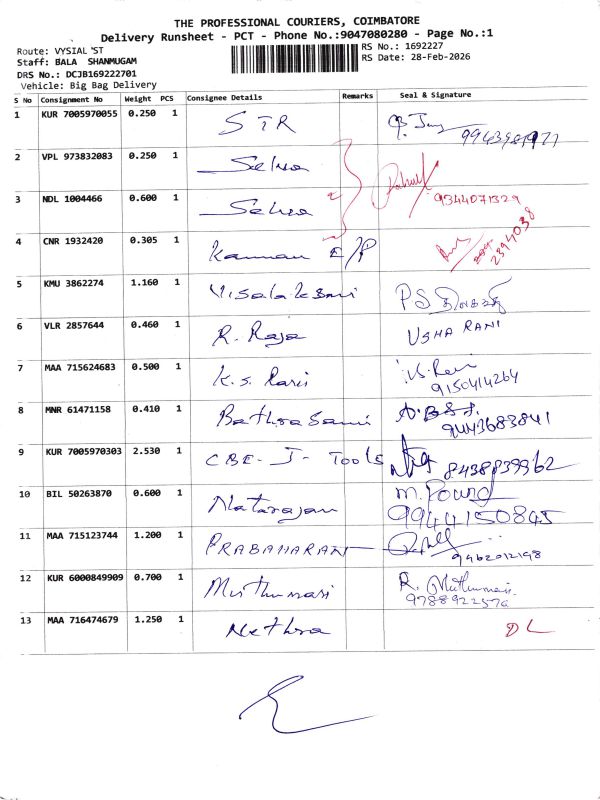 THE PROFESSIONAL COURIERS, COIMBATORE
Delivery Runsheet - PCT - Phone No.:9047080280 - Page No.:1
Route: VYSIAL 'ST
RS No.: 1692227
Staff: BALA SHANMUGAM
RS Date: 28-Feb-2026
DRS No.: DCJB169222701
Vehicle: Big Bag Delivery
S No Consignment No Weight PCS Consignee Details Remarks Seal & Signature
1 KUR 7005970055 0.250 1 STR
2 VPL 973832083 0.250 1 Selva
3 NDL 1004466 0.600 1 Selva 9344071329
4 CNR 1932420 0.305 1 Kannan E/P
5 KMU 3862274 1.160 1 Visalakshi
6 VLR 2857644 0.460 1 R. Raja USHA RANI
7 MAA 715624683 0.500 1 K.S. Ravi
9150414264
8 MNR 61471158 0.410 1 Bathrasami
9443683841
9 KUR 7005970303 2.530 1 CBE-J-Tools 8438839962
10 BIL 50263870 0.600 1 Natarajan
9944150845
11 MAA 715123744 1.200 1 PRABAHARAN
12 KUR 6000849909 0.700 1 Muthumari R. Muthumari
13 MAA 716474679 1.250 1 Nethra DL